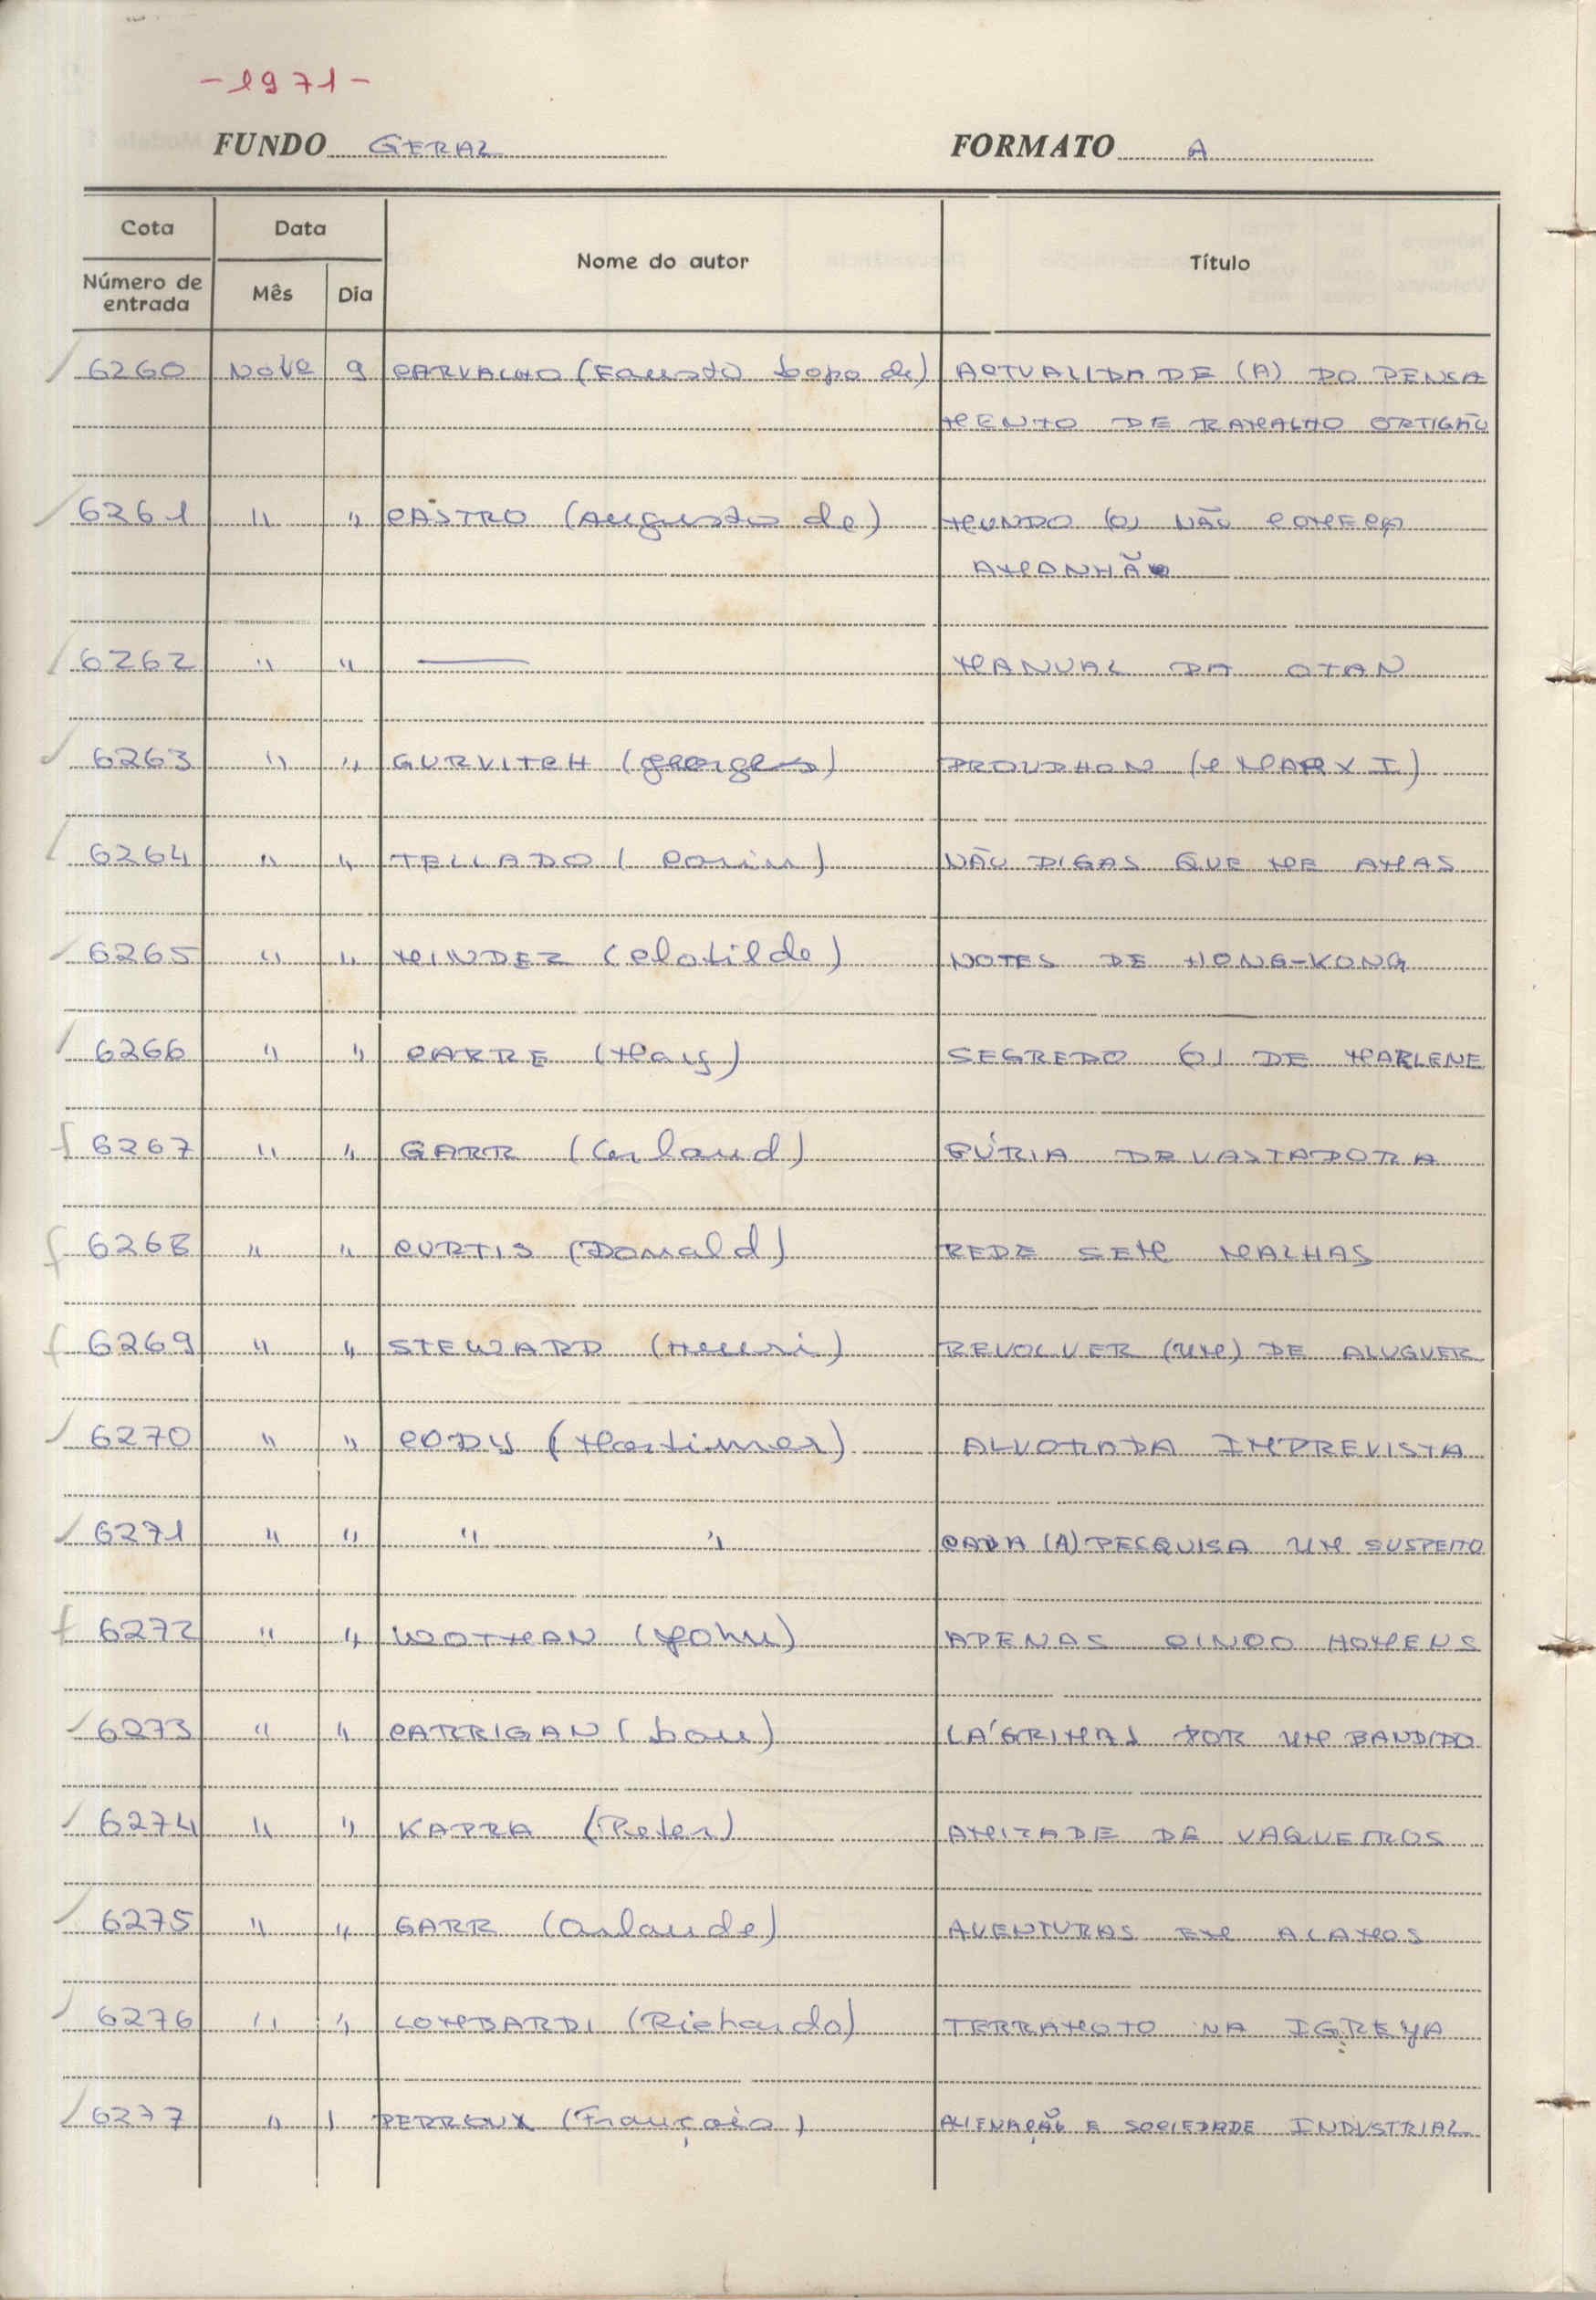 -1971-
FUNDO GERAL FORMATO A
Cota Data Nome do autor Título
Número de entrada Mês Dia
6260 NOVe 9 CARVALHO (Fausto Lopo de) ACTUALIDADE (A) DO PENSA
MENTO DE RAMALHO ORTIGÃO
6261 " " CASTRO (Augusto de) MUNDO (O) NÃO COMEÇA
AMANHÃ
6262 " " — MANUAL DA OTAN
6263 " " GURVITCH (Georges) PROUDHON (e MARX I)
6264 " " TELLADO (Corin) NÃO DIGAS QUE ME AMAS
6265 " " MINDEZ (Clotilde) NOTES DE HONG-KONG
6266 " " CARRE (May) SEGREDO (O) DE MARLENE
6267 " " GARR (Arlaud) FÚRIA DEVASTADORA
6268 " " CURTIS (Donald) REDE SEM MALHAS
6269 " " STEWARD (Henri) REVOLVER (UM) DE ALUGUER
6270 " " CODY (Mortimer) ALVORADA IMPREVISTA
6271 " " " " CADA (A) PESQUISA UM SUSPEITO
6272 " " WOTMAN (John) APENAS CINCO HOMENS
6273 " " CARRIGAN (Lou) LÁGRIMAS POR UM BANDIDO
6274 " " KAPRA (Peter) AMIZADE DE VAQUEIROS
6275 " " GARR (Arlaude) AVENTURAS EM ALAMOS
6276 " " LOMBARDI (Richardo) TERRAMOTO NA IGREJA
6277 " " PERROUX (François) ALIENAÇÃO E SOCIEDADE INDUSTRIAL